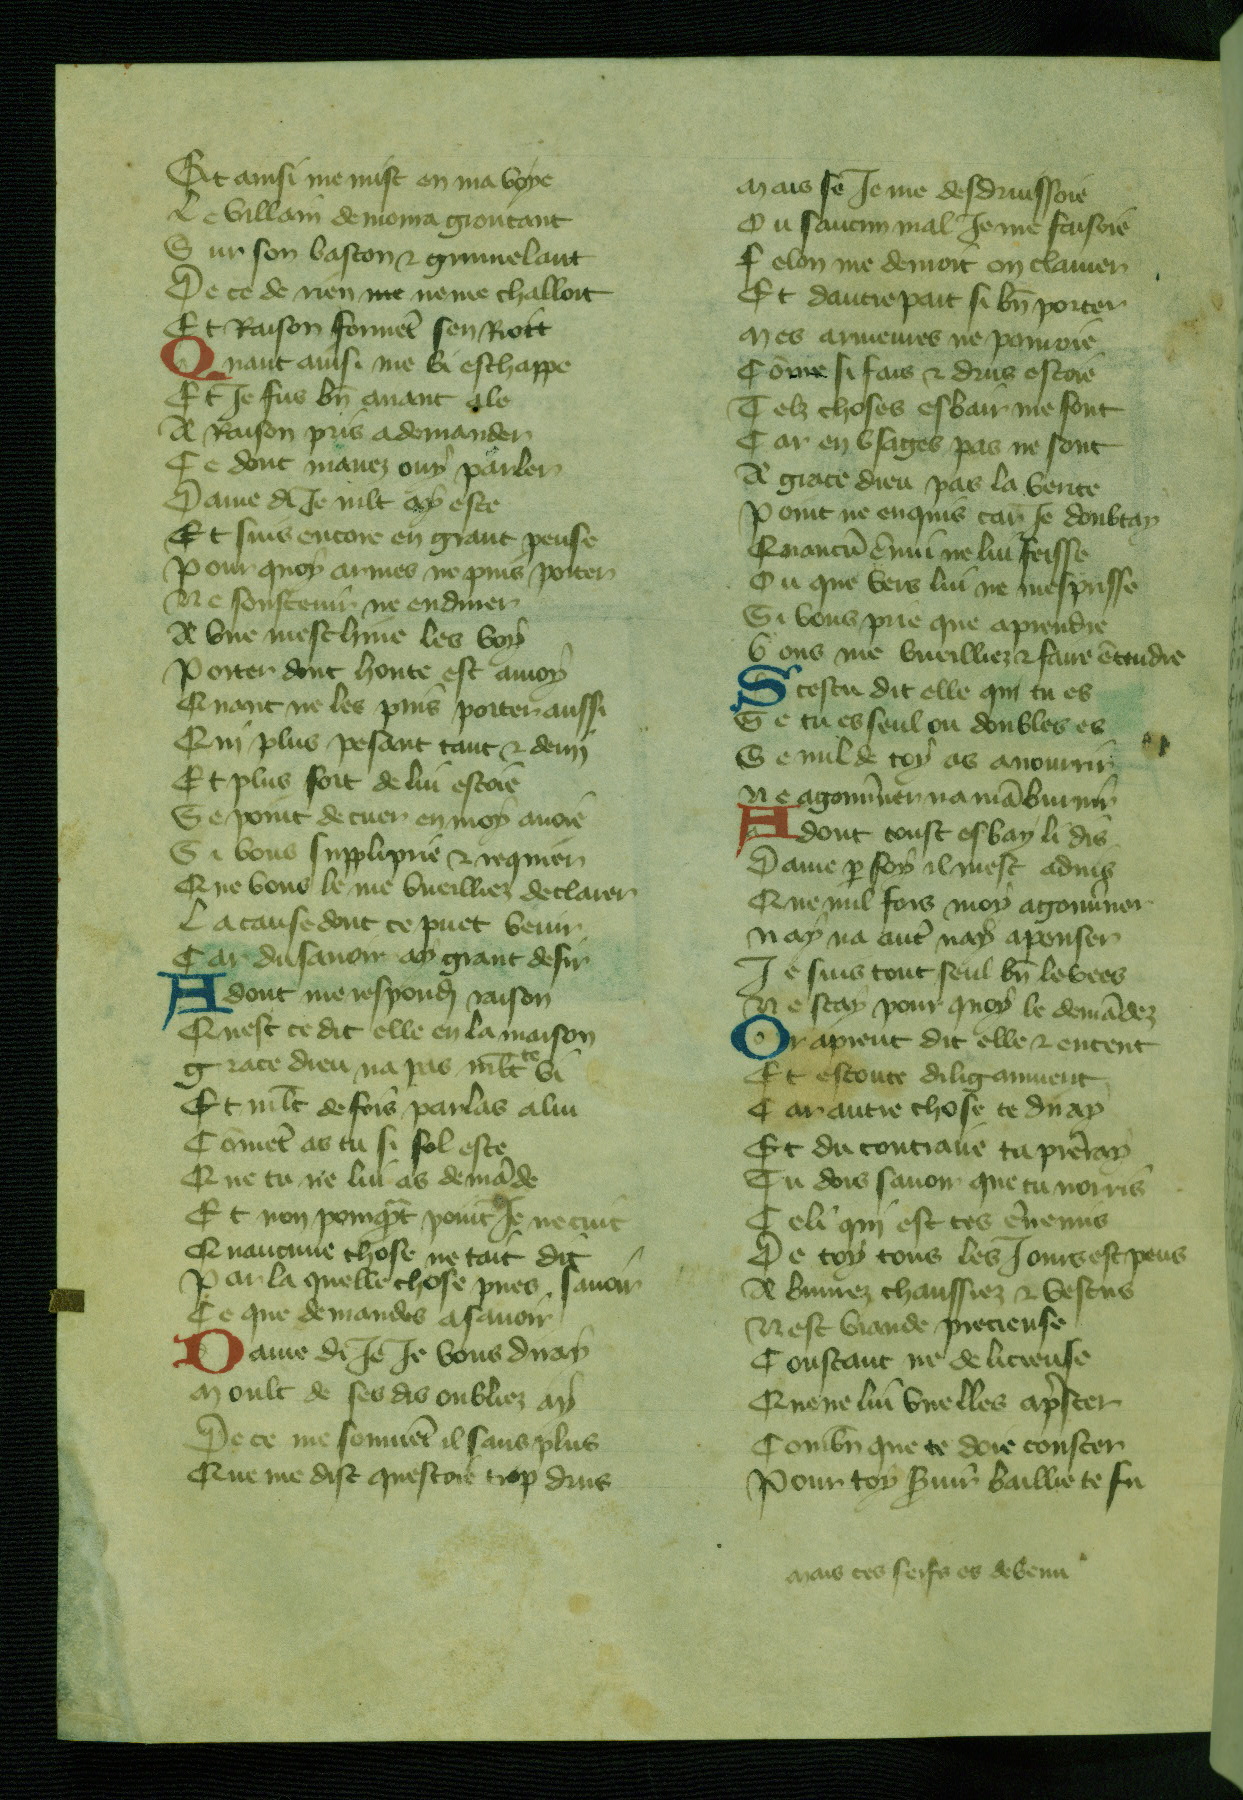 Et ainsi me mist en ma voye
Le villain demoura groucant
Sur son baston & grumelant
De ce de rien me ne me challoit
Et Raison formēt sen Riott
Quant ainsi me vi eschappe
Et Je fus bn̄ auant ale
A Raison pris a demander
Ce dont mauez ouy parler
Dame dī Je mlt ay este
Et suis encore en grant pense
Pour quoy armes ne puis porter
Ne soustenir ne endurer
A vne meschine les voy
Porter dont honte est a moy
Quant ne les puis porter aussi
Qui plus pesant tant & demy
Et plus fort de lui estoie
Se point de cuer en moy auoie
Si vous suppliprie & requier
Que vous le me vueilliez declairer
La cause dont ce puet venir
Car du sauoir ay grant desir
Adont me respond raison
Quest ce dit elle en la maison
grace dieu na pas mlt te vi
Et mlt de fois parlas a lui
Cōmēt as tu si fol este
Que tu ne lui as demāde
Et non pourqͣt point Je ne cuit
Quaucune chose ne tait dit
Par la quelle chose pues sauoir
Ce que demandes a sauoir
Dame dī Je Je vous diray
Moult de ses dis oubliez ay
De ce me souuēt il sans plus
Que me dist questoie trop drus
Mais se Je me desdruissoie
Ou saucun mal Je me faisoie
Felon me demoit on clamer
Et dautre part si bn̄ porter
Mes armeures ne pouuoie
Cōme si fais & drus estoie
Telz choses esbair me font
Car en vsages pas ne sont
A grace dieu pas la verite
Point ne enquis car Je doubtay
Quaucū ēnui ne lui feisse
Ou que vers lui ne mesprisse
Si vous prie que aprendre
Vous me vueilliez & faire ētendre
Scestu dit elle qui tu es
Se tu es seul ou doubles es
Se nul de toy as a nourrir
Ne a gouu̅ner na māburnir
Adont toust esbay li dis
Dame p̲ foy il mest aduis
Que nul fors moy a gouu̅ner
Nay na aut̄ nay a penser
Je suis tout seul bn̄ le vees
Ne scay pour quoy le demādez
Or aprent dit elle & entent
Et escoute diliganment
Car autre chose te diray
Et du contraire ta pre̅ray
Tu dois sauoir que tu norris
Celi qui est tes ēnemis
De toy tous les Jours est peus
A buurez chaussiez & vestus
Nest viande precieuse
Coustant ne delicieuse
Que ne lui vuelles ap̄ster
Combn̄ que te doie couster
Pour toy s̄uir baillie te fu
Mais tes serfs es deuenu